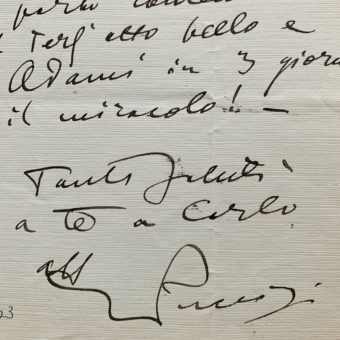 parlo conten
il Terz' atto bello e
Adami in 3 giorn
il miracolo! —
Tanti saluti
a te a Carlo
aff
GPuccini
23